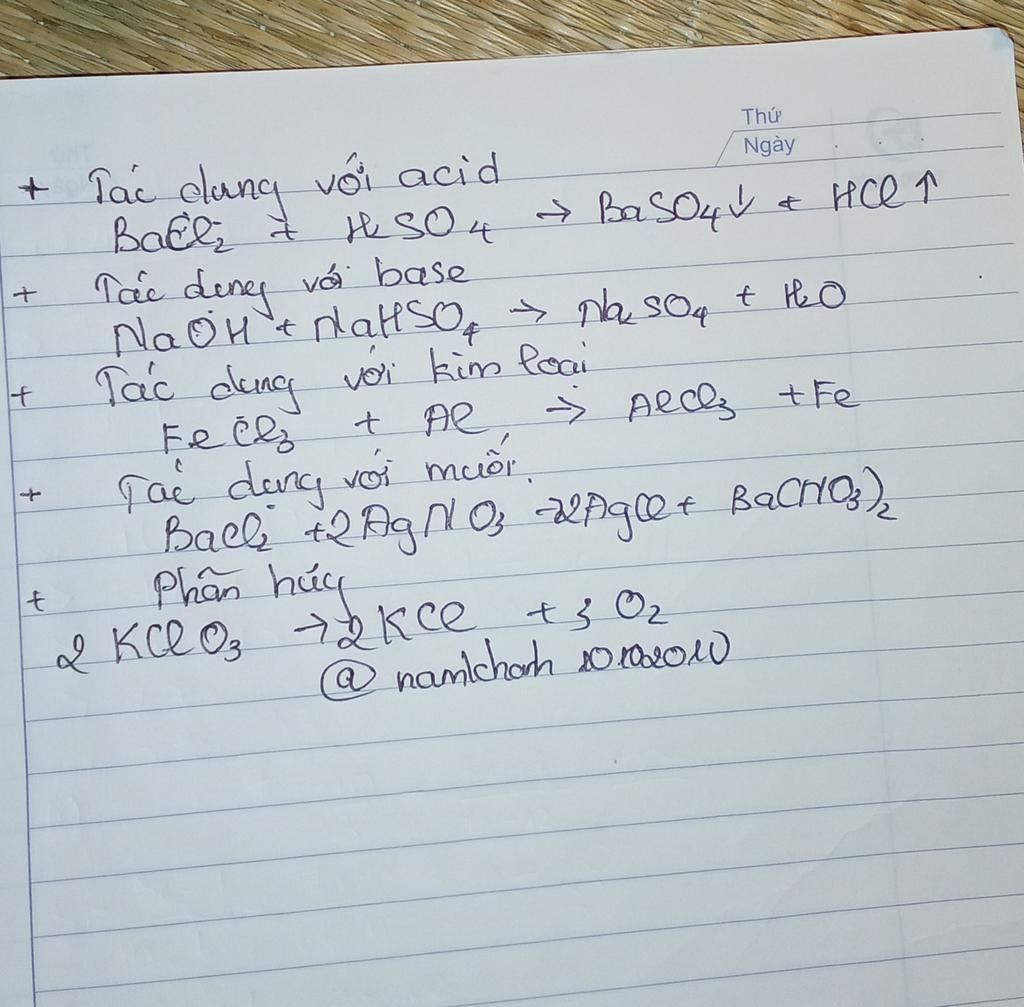 Thứ
Ngày
+ Tác dụng với acid
BaCl₂ + H₂SO₄ → BaSO₄↓ + HCl↑
+ Tác dụng với base
NaOH + NaHSO₄ → Na₂SO₄ + H₂O
+ Tác dụng với kim loại
FeCl₃ + Al → AlCl₃ + Fe
+ Tác dụng với muối.
BaCl₂ + 2AgNO₃ → 2AgCl + Ba(NO₃)₂
+ Phân hủy
2 KClO₃ → 2 KCl + 3 O₂